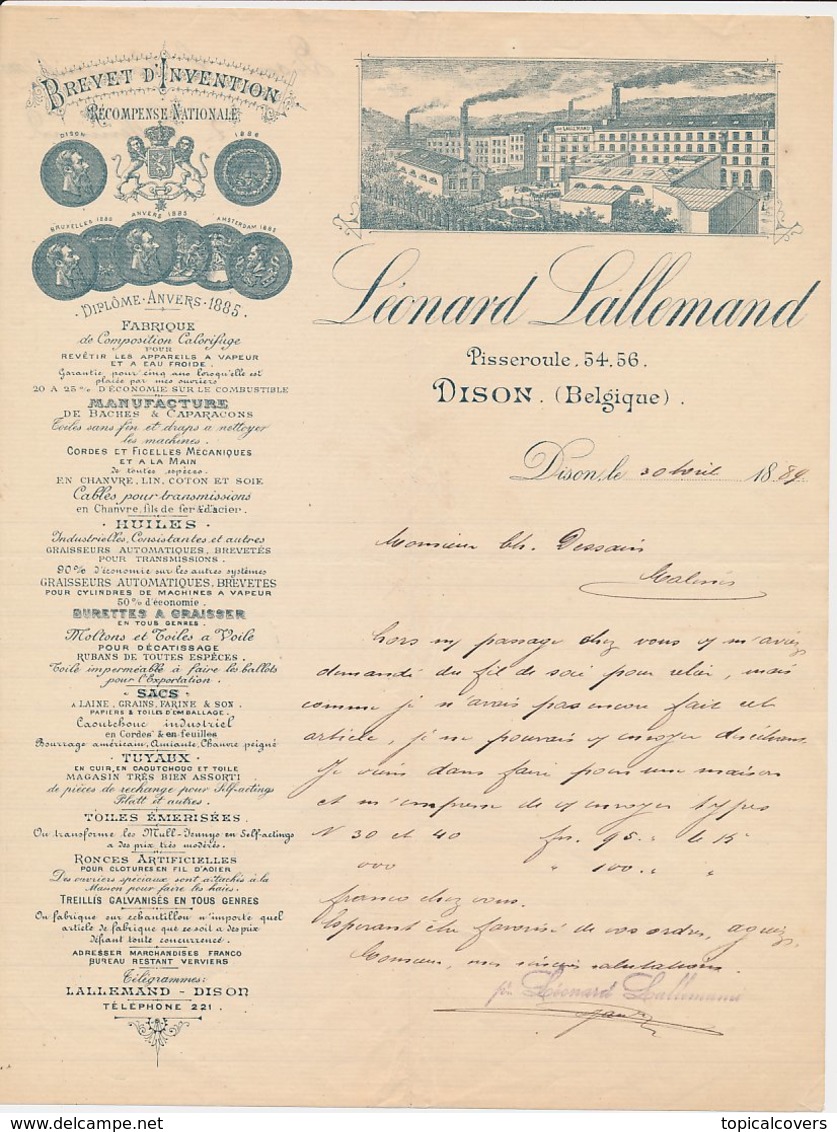 BREVET D'INVENTION
RÉCOMPENSE NATIONALE
DISON 1886
BRUXELLES 1880 ANVERS 1885 AMSTERDAM 1883
DIPLÔME-ANVERS-1885.
FABRIQUE
de Composition Calorifuge
POUR
REVÊTIR LES APPAREILS A VAPEUR
ET A EAU FROIDE.
Garantie pour cinq ans lorsqu'elle est
placée par mes ouvriers
20 A 25% D'ÉCONOMIE SUR LE COMBUSTIBLE
MANUFACTURE
DE BACHES & CAPARAÇONS
Toiles sans fin et draps a nettoyer
les machines.
CORDES ET FICELLES MÉCANIQUES
ET A LA MAIN
de toutes espèces.
EN CHANVRE, LIN, COTON ET SOIE
Cables pour transmissions
en Chanvre, fils de fer & d'acier.
HUILES
Industrielles, Consistantes et autres
GRAISSEURS AUTOMATIQUES, BREVETÉS
POUR TRANSMISSIONS.
90% d'économie sur les autres systèmes
GRAISSEURS AUTOMATIQUES, BREVETÉS
POUR CYLINDRES DE MACHINES A VAPEUR
50% d'économie.
BURETTES A GRAISSER
EN TOUS GENRES.
Moltons et Toiles a Voile
POUR DÉCATISSAGE
RUBANS DE TOUTES ESPÈCES.
Toile imperméable à faire les ballots
pour l'Exportation.
SACS
A LAINE, GRAINS, FARINE & SON.
PAPIERS & TOILES D'EMBALLAGE.
Caoutchouc industriel
en Cordes & en feuilles
Bourrage américain, Amiante, Chanvre peigné
TUYAUX
EN CUIR, EN CAOUTCHOUC ET TOILE
MAGASIN TRÈS BIEN ASSORTI
de pièces de rechange pour Self-actings
Platt et autres.
TOILES ÉMERISÉES.
On transforme les Mull-Jennys en Self-actings
a des prix très modérés.
RONCES ARTIFICIELLES
POUR CLOTURES EN FIL D'ACIER
Des ouvriers spéciaux sont attachés à la
Maison pour faire les haies.
TREILLIS GALVANISÉS EN TOUS GENRES
On fabrique sur echantillon n'importe quel
article de fabrique que ce soit a des prix
défiant toute concurrence.
ADRESSER MARCHANDISES FRANCO
BUREAU RESTANT VERVIERS
Télégrammes:
LALLEMAND-DISON
TÉLÉPHONE 221.
LALLEMAND
Léonard Lallemand
Pisseroule, 54.56.
DISON. (Belgique).
Dison, le 30 Avril 1889.
Monsieur Ch. Dessain
Malines
Lors my passage chez vous v m'aviez
demandé du fil de soie pour relier, mais
comme je n'avais pas encore fait cet
article, je ne pouvais v envoyer
Je viens dans faire pour une maison
et m'empresse de v envoyer types
N 30 et 40 frs. 95." le
000 " 100." "
franco chez vous.
Esperant être favorisé de vos ordres, agréez,
Monsieur, mes sincères salutations.
Léonard Lallemand
topicalcovers